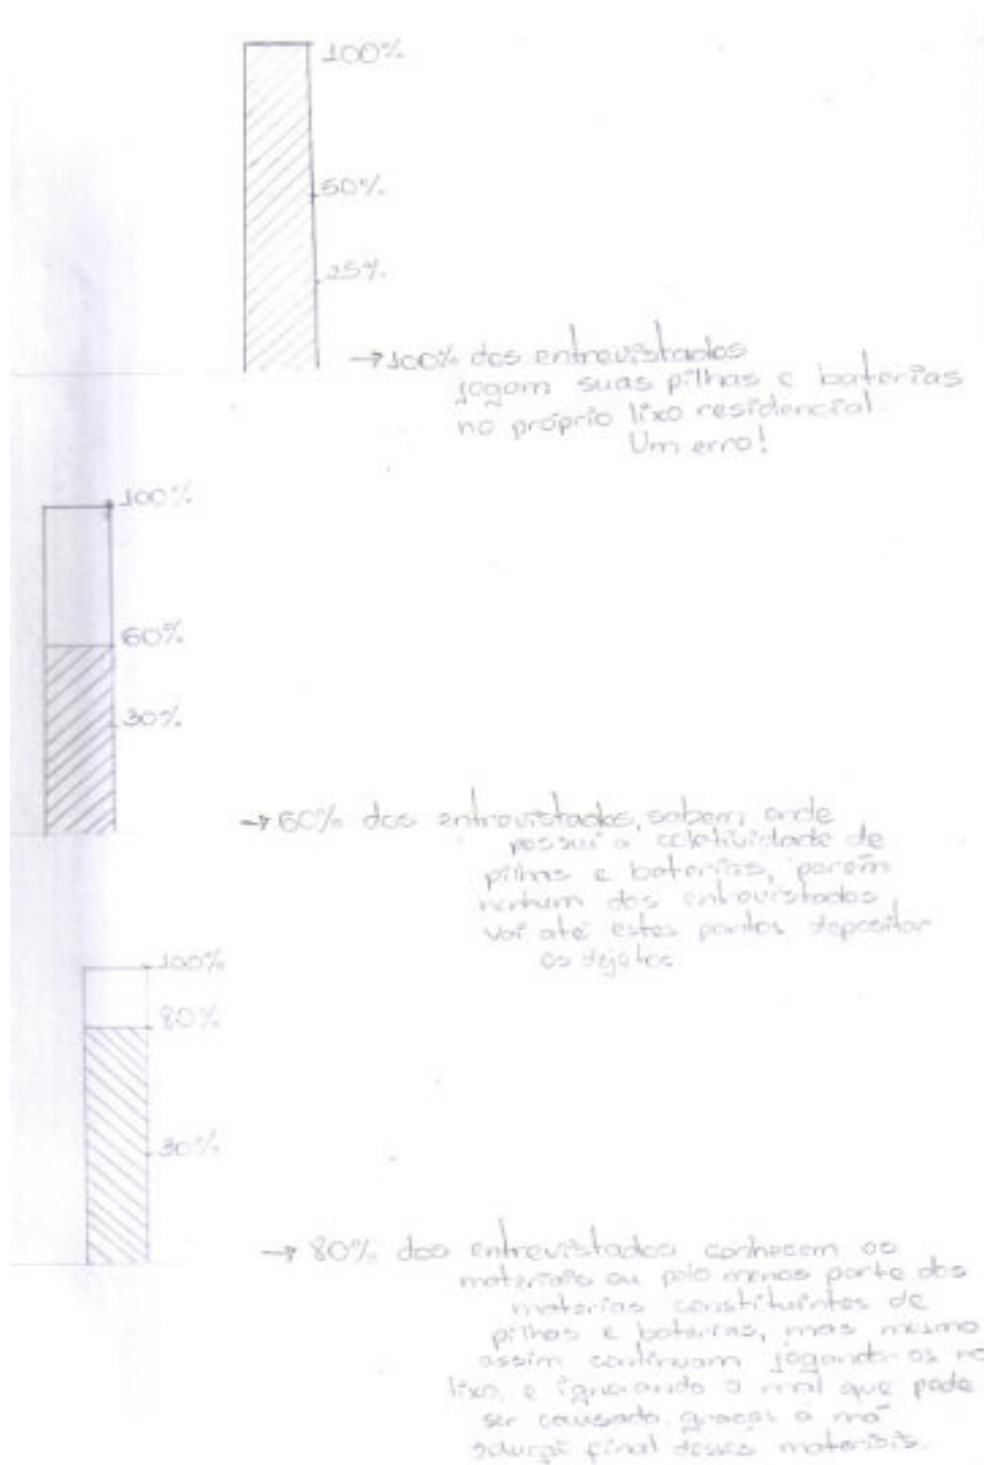 100%
50%
25%
→100% dos entrevistados
jogam suas pilhas e baterias
no próprio lixo residencial.
Um erro!
100%
60%
30%
→ 60% dos entrevistados, sabem onde
possui a coletividade de
pilhas e baterias, porém
nenhum dos entrevistados
vai até estes pontos depositar
os dejetos
100%
80%
30%
→ 80% dos entrevistados conhecem os
materiais ou pelo menos parte dos
materias constituintes de
pilhas e baterias, mas mesmo
assim continuam jogando-os no
lixo, e ignorando o mal que pode
ser causado graças a má
final desses materiais.